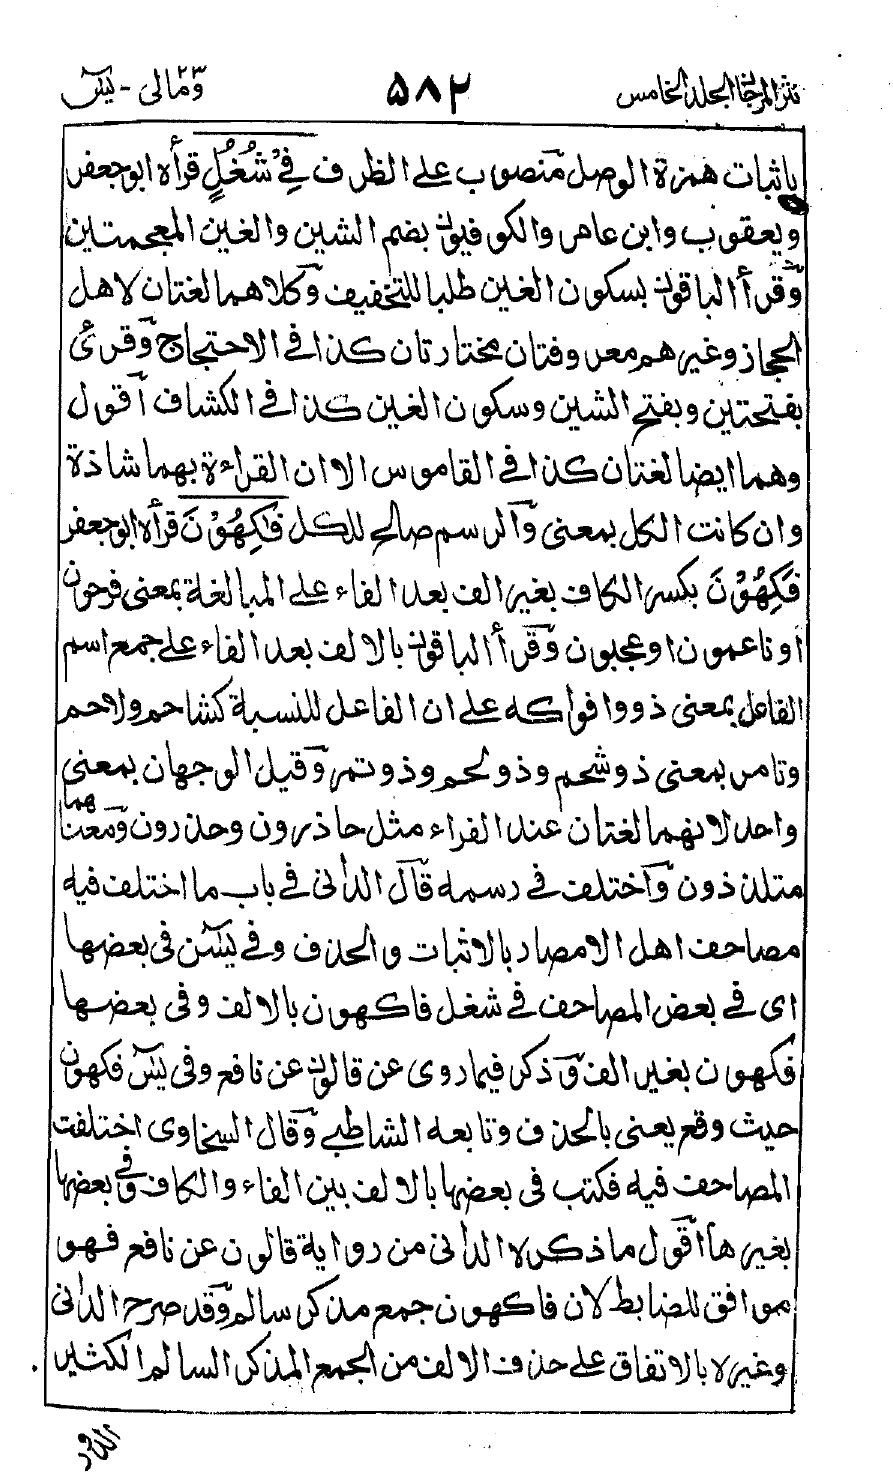 نثر المرجان المجلد الخامس ۵۸۲ ومالي ۲۳ - يٰسٓ
باثبات همزة الوصل منصوب على الظرف فِيْ شُغُلٍ قرأه ابو جعفر
ويعقوب وابن عامر والكوفيون بضم الشين والغين المعجمتين
وقرأ الباقون بسكون الغين طلبا للتخفيف وكلاهما لغتان لاهل
الحجاز وغيرهم معروفتان مختارتان كذا في الاحتجاج وقرئ
بفتحتين وبفتح الشين وسكون الغين كذا في الكشاف اقول
وهما ايضا لغتان كذا في القاموس الا ان القراءة بهما شاذة
وان كانت الكل بمعنى والرسم صالح للكل فٰكِهُوْنَ قرأه ابو جعفر
فَكِهُوْنَ بكسر الكاف بغير الف بعد الفاء على المبالغة بمعنى فرحون
او ناعمون او عجبون وقرأ الباقون بالالف بعد الفاء على جمع اسم
الفاعل بمعنى ذووا فواكه على ان الفاعل للنسبة كشاحم ولاحم
وتامر بمعنى ذو شحم وذو لحم وذو تمر وقيل الوجهان بمعنى
واحد لانهما لغتان عند الفراء مثل حاذرون وحذرون ومعناهما
متلذذون واختلف في رسمه قال الداني في باب ما اختلف فيه
مصاحف اهل الامصار بالاثبات والحذف وفي يٰسٓ في بعضها
اي في بعض المصاحف في شغل فاكهون بالالف وفي بعضها
فكهون بغير الف وذكر فيما روى عن قالون عن نافع وفي يٰسٓ فكهون
حيث وقع يعني بالحذف وتابعه الشاطبي وقال السخاوي اختلفت
المصاحف فيه فكتب في بعضها بالالف بين الفاء والكاف وفي بعضها
بغيرها اقول ما ذكره الداني من رواية قالون عن نافع فهو
موافق للضابط لان فاكهون جمع مذكر سالم وقد صرح الداني
وغيره بالاتفاق على حذف الالف من الجمع المذكر السالم الكثير
الدور